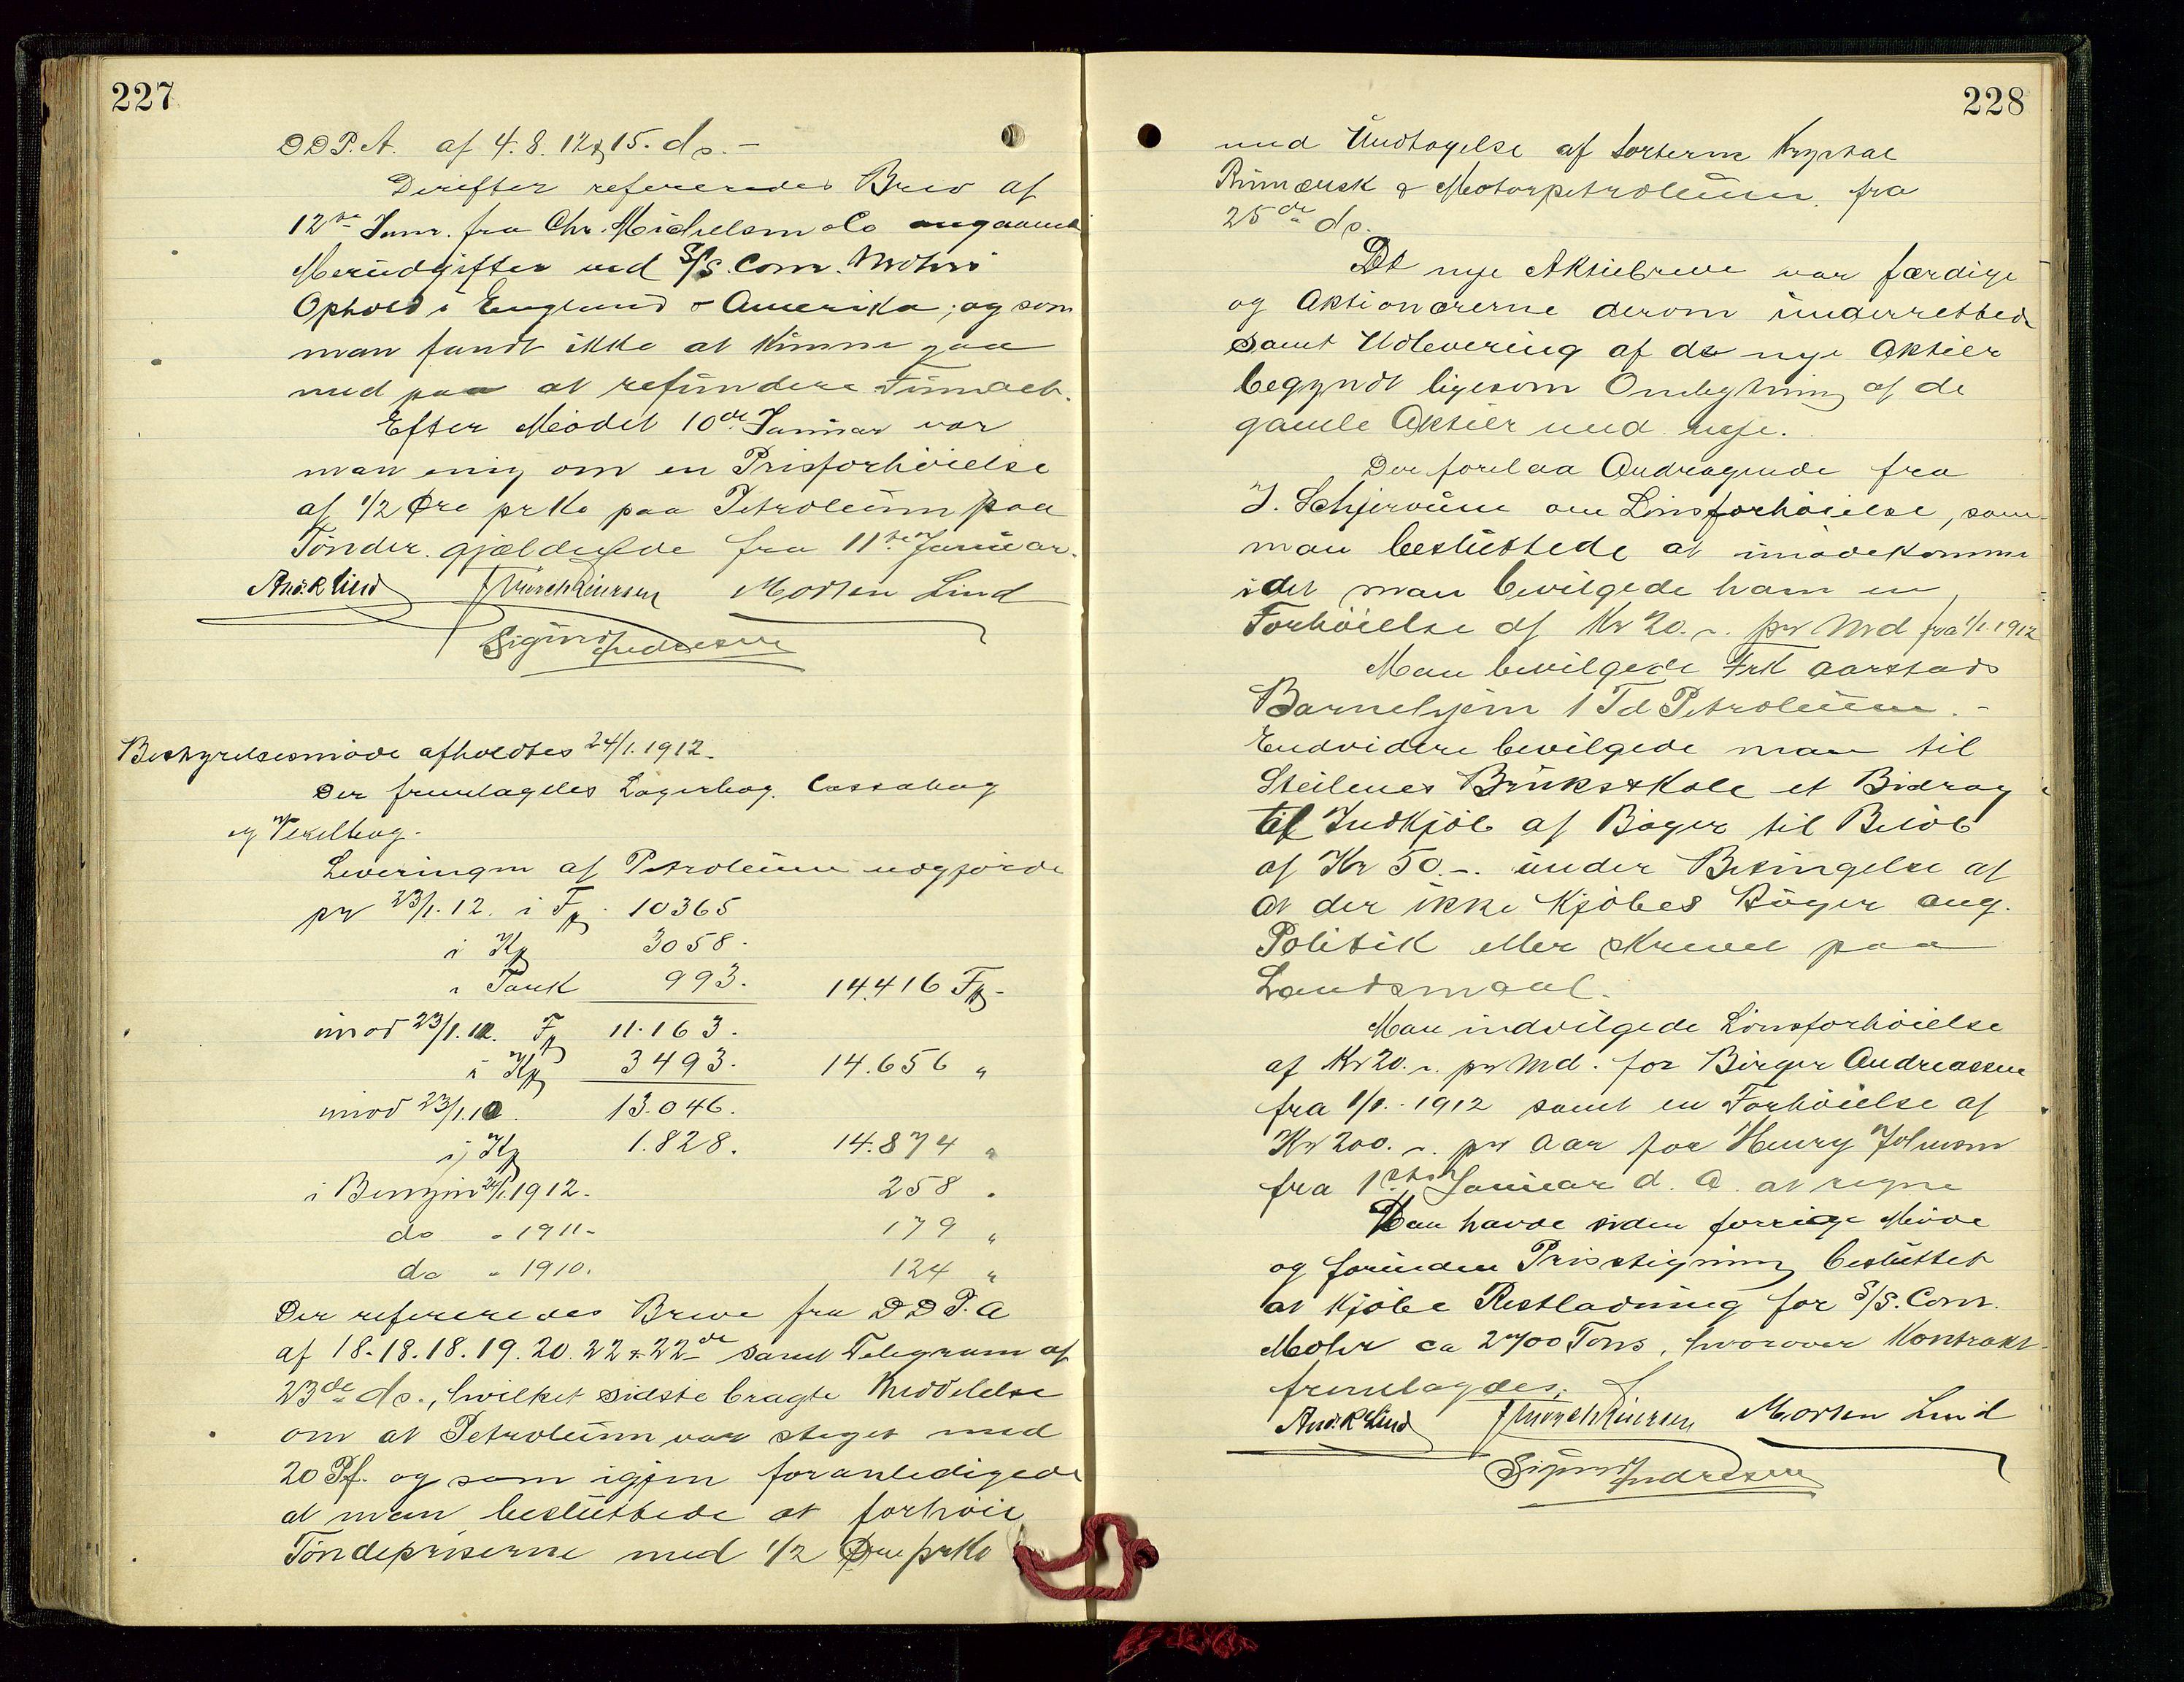 227
DDP.A. af 4. 8. 12 & 15. ds. -
Derefter refereredes Brev af
12te Janr. fra Chr. Michelsen & Co angaaende
Merudgifter ved S/S. Com. Mohrs
Ophold i England & Amerika, og som
man fandt ikke at kunne gaa
med paa at refundere
Efter Mödet 10de Januar var
man enig om en Prisforhöielse
af 1/2 Øre pr Ko paa Petroleum paa
Tönder. gjældende fra 11te Januar.
And. K Lind Morten Lind
Sigurd Andresen
Bestyrelsesmöde afholdtes 24/1. 1912.
Der fremlagdes Lagerbog. Cassabog
og Vexelbog.
Leveringen af Petroleum udgjorde
pr 23/1. 12. i Fp. 10365
i Kp 3058.
i Tank 993. 14.416 Fp.
imod 23/1. 11. Fp 11.163.
i Kp 3493. 14.656 "
imod 23/1. 10. 13.046.
i Kp 1.828. 14.874 "
i Benzin 24/1. 1912. 258 "
do " 1911- 179 "
do " 1910. 124 "
Der refereredes Breve fra DDP.A
af 18. 18. 18. 19. 20. 22 & 22de samt Telegram af
23de ds., hvilket sidste bragte Meddelelse
om at Petroleum var steget med
20 Pf. og som igjen foranledigede
at man besluttede at forhöie
Töndepriserne med 1/2 Øre pr Ko
228
med Undtagelse af Sorterne Krystal
Rumænsk & Motorpetroleum. fra
25de ds.
De nye Aktiebreve var færdige
og Aktionærerne derom underrettede
samt Udlevering af de nye Aktier
begyndt ligesom Ombytning af de
gamle Aktier med nye.
Der forelaa Andragende fra
J. Schjervum om Lönsforhöielse, som
man besluttede at imödekomme
idet man bevilgede ham en
Forhöielse af Kr 20. -. pr Md fra 1/1. 1912
Man bevilgede Frk Aarstads
Barnehjem 1 Td Petroleum. -
Endvidere bevilgede man til
Steilenes Brukskole et Bidrag
til Indkjöb af Böger til Belöb
af Kr 50. -. under Betingelse af
at der ikke kjöbes Böger ang.
Politik eller skrevet paa
Landsmaal.
Man indvilgede Lönsforhöielse
af Kr 20. -. pr Md. for Birger Andreassen
fra 1/1. - 1912 samt en Forhöielse af
Kr 200. -. pr Aar for Henry Johnsen
fra 1ste Januar d. A. at regne
Man havde siden forrige Möde
og forinden Prisstigning besluttet
at kjöbe Restladning for S/S. Com.
Mohr ca 2700 Tons, hvorover Kontrakt
fremlagdes.
And. K Lind Morten Lind
Sigurd Andresen